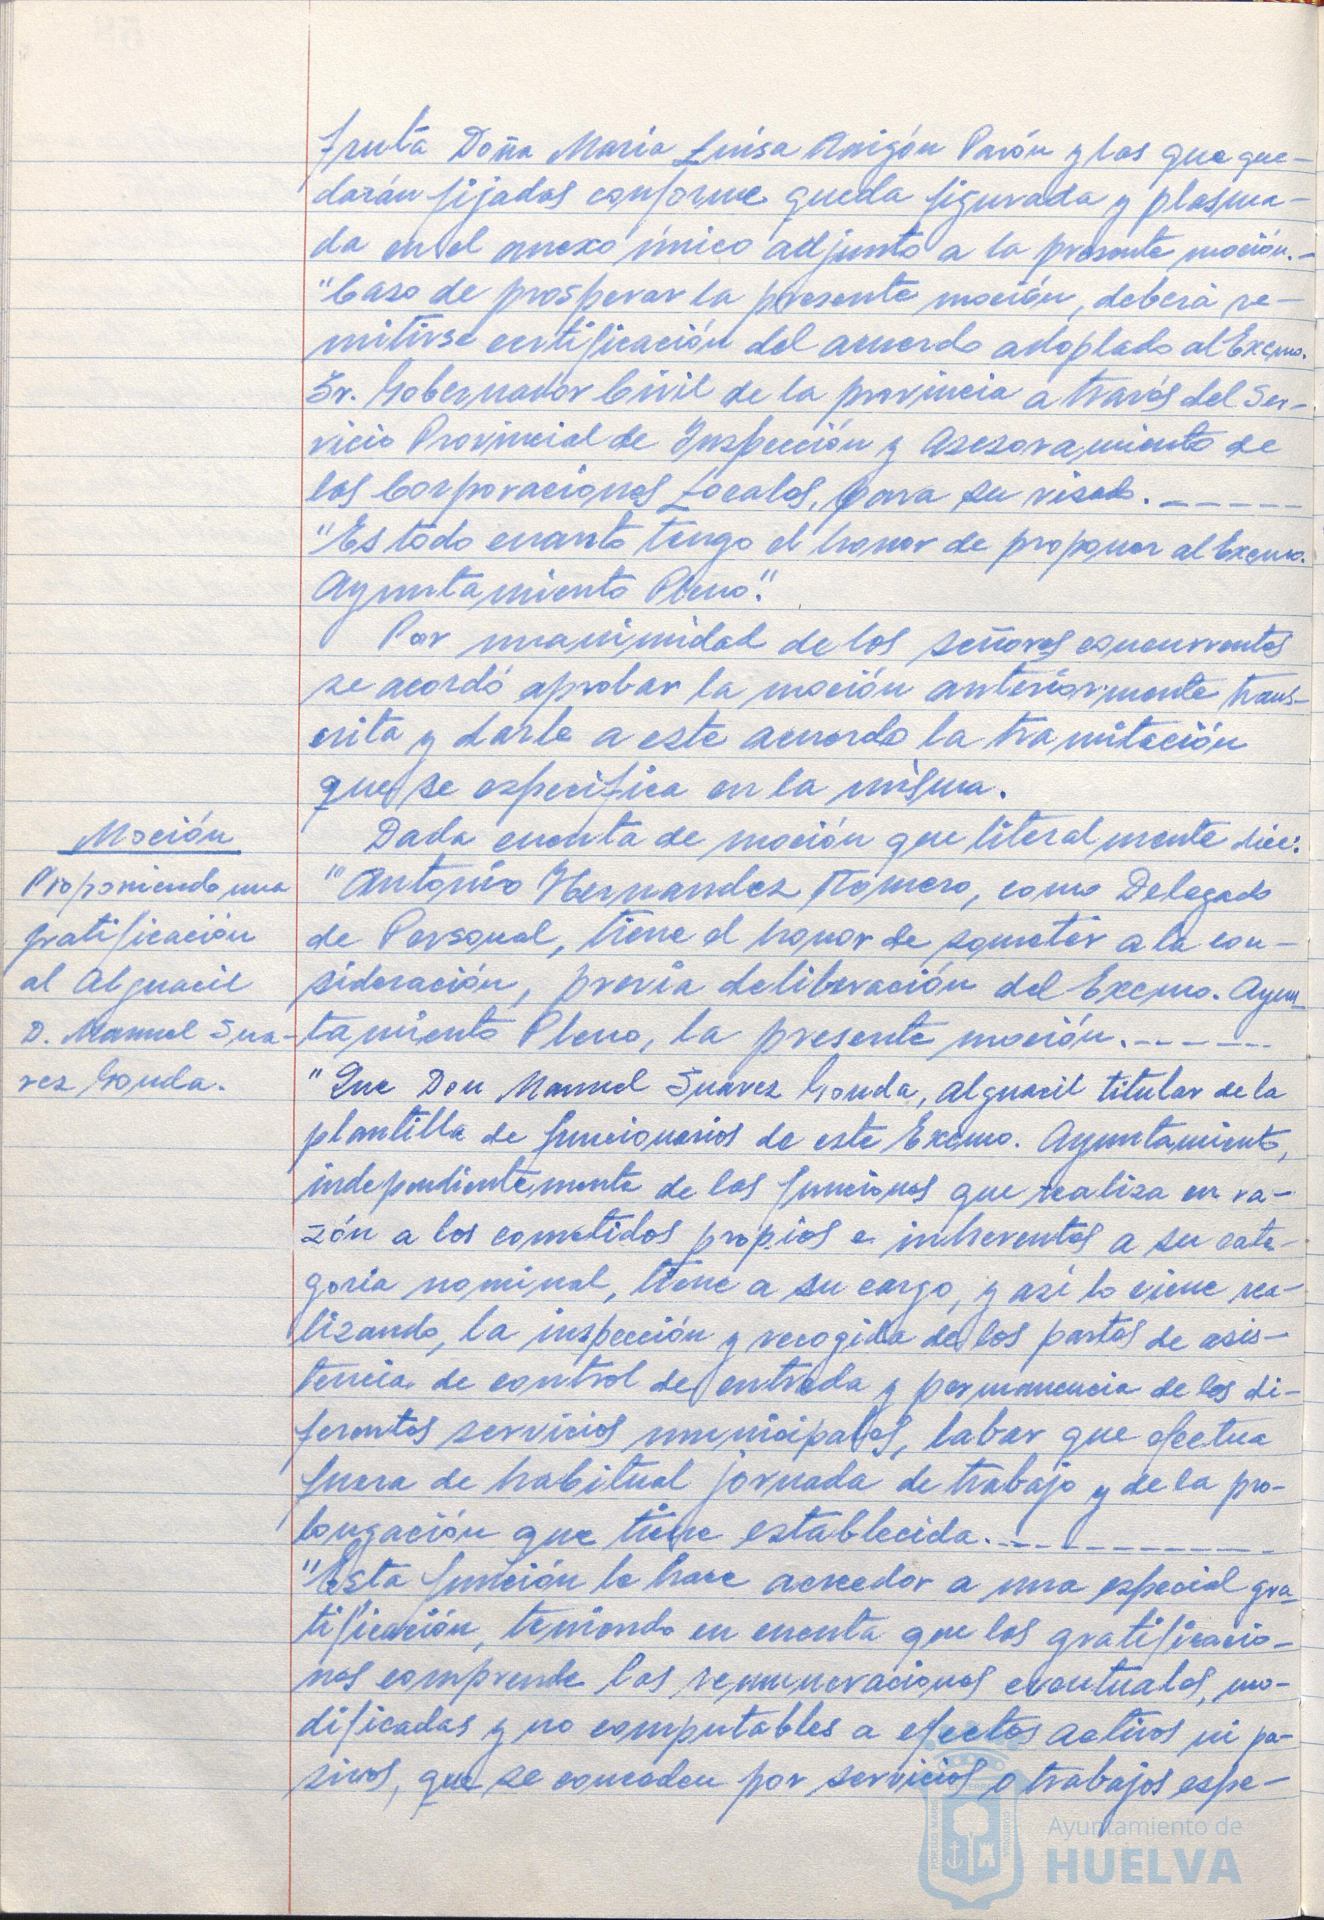 fruta Doña María Luisa Arigón Pavón y las que que-
darán fijadas conforme queda figurada y plasma-
da en el anexo único adjunto a la presente moción.-
"Caso de prosperar la presente moción, deberá re-
mitirse certificación del acuerdo adoptado al Excmo.
Sr. Gobernador Civil de la provincia a través del Ser-
vicio Provincial de Inspección y Asesoramiento de
las Corporaciones Locales, para su visado.-----
"Es todo cuanto tengo el honor de proponer al Excmo.
Ayuntamiento Pleno".
Por unanimidad de los señores concurrentes
se acordó aprobar la moción anteriormente trans-
crita y darle a este acuerdo la tramitación
que se especifica en la misma.
Moción
Proponiendo una
gratificación
al Alguacil
D. Manuel Sua-
rez Gonda.
Dada cuenta de moción que literalmente dice:
"Antonio Hernandez Romero, como Delegado
de Personal, tiene el honor de someter a la con-
sideración, previa deliberación del Excmo. Ayun-
tamiento Pleno, la presente moción.------
"Que Don Manuel Suarez Gonda, alguacil titular de la
plantilla de funcionarios de este Excmo. Ayuntamiento,
independientemente de las funciones que realiza en ra-
zón a los cometidos propios e inherentes a su cate-
goria nominal, tiene a su cargo, y así lo viene rea-
lizando, la inspección y recogida de los partes de asis-
tencia de control de entrada y permanencia de los di-
ferentes servicios municipales, labor que efectua
fuera de habitual jornada de trabajo y de la pro-
longación que tiene establecida.------------
"Esta función le hace acreedor a una especial gra-
tificación, teniendo en cuenta que las gratificacio-
nes comprende las remuneraciones eventuales, mo-
dificadas y no computables a efectos activos ni pa-
sivos, que se conceden por servicios o trabajos espe-
Ayuntamiento de
HUELVA